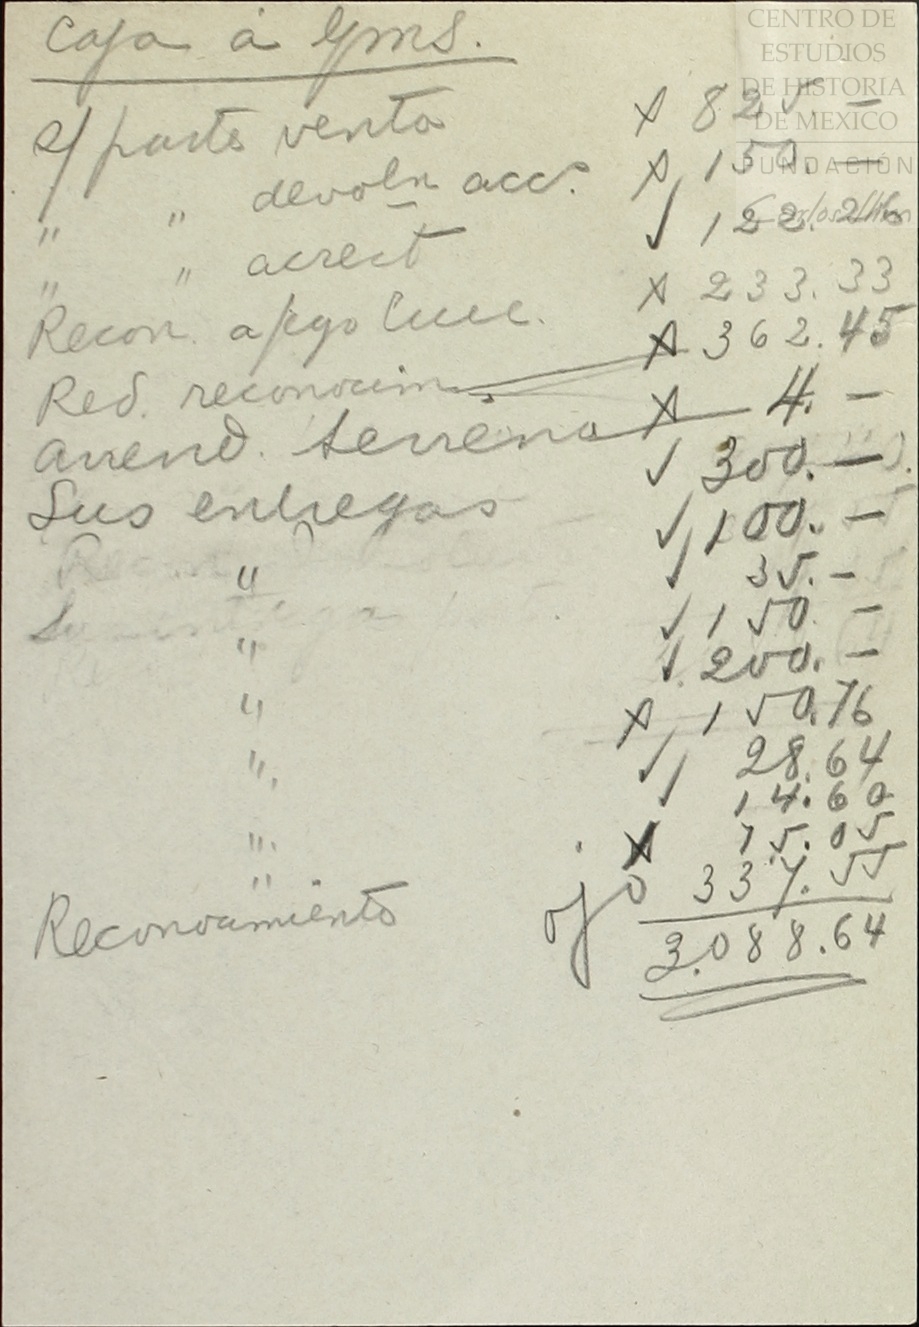 Caja á Gms.
CENTRO DE
ESTUDIOS
DE HISTORIA
DE MEXICO
FUNDACIÓN
Carlos Slim
s/ parte venta X 825.—
" " devoln accs. X 150.—
" " acrect ✓ 122.26
Recon. a/ego Cuec. X 233.33
Red. reconocim X 362.45
arrend. terreno X 4.—
Sus entregas ✓ 300.—
" ✓ 100.—
✓ 35.—
" ✓ 150.—
✓ 200.—
" X 150.76
" ✓ 28.64
✓ 14.60
" X 75.05
"
Reconocimiento ojo 337.55
3.088.64